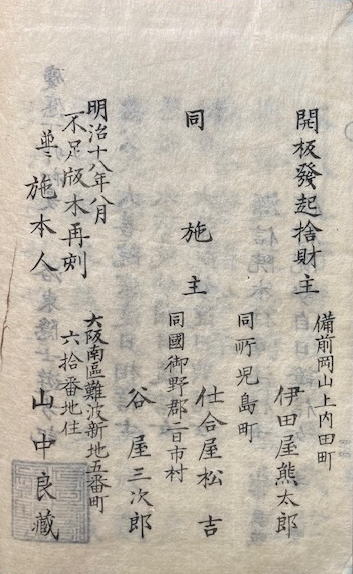 開板發起捨財主
備前岡山上内田町
伊田屋熊太郎
同所児島町
同施主
仕合屋松吉
同國御野郡二日市村
谷屋三次郎
明治十八年八月
不足版木再刻
大阪南區難波新地五番町
六拾番地住
並施本人
山中良藏